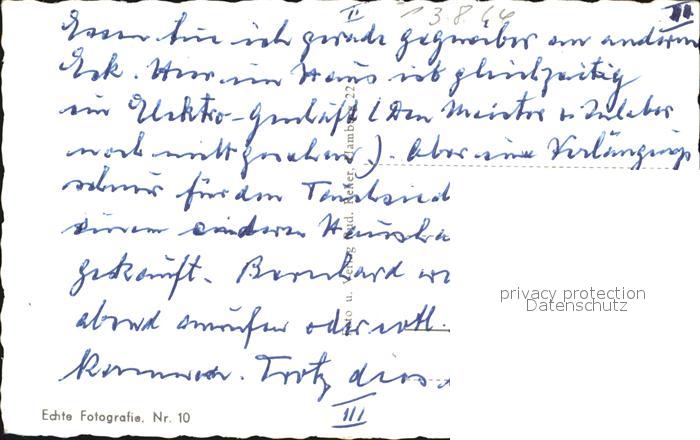 II 13.8.64 III
Essen bin ich gerade gegenüber am anderen
Eck. Hier im Haus ist gleichzeitig
ein Elektro-Geschäft (den Meister u. Inhaber
noch nicht gesehen). Aber eine Verlängerungs
schnur für den Tauchsied
einem anderen Hausha
gekauft. Bernhard
abend anrufen oder evtl.
kommen. Trotz dies
III
Echte Fotografie, Nr. 10
Foto u. Verlag Rud. Reher, Hamburg 22
privacy protection
Datenschutz